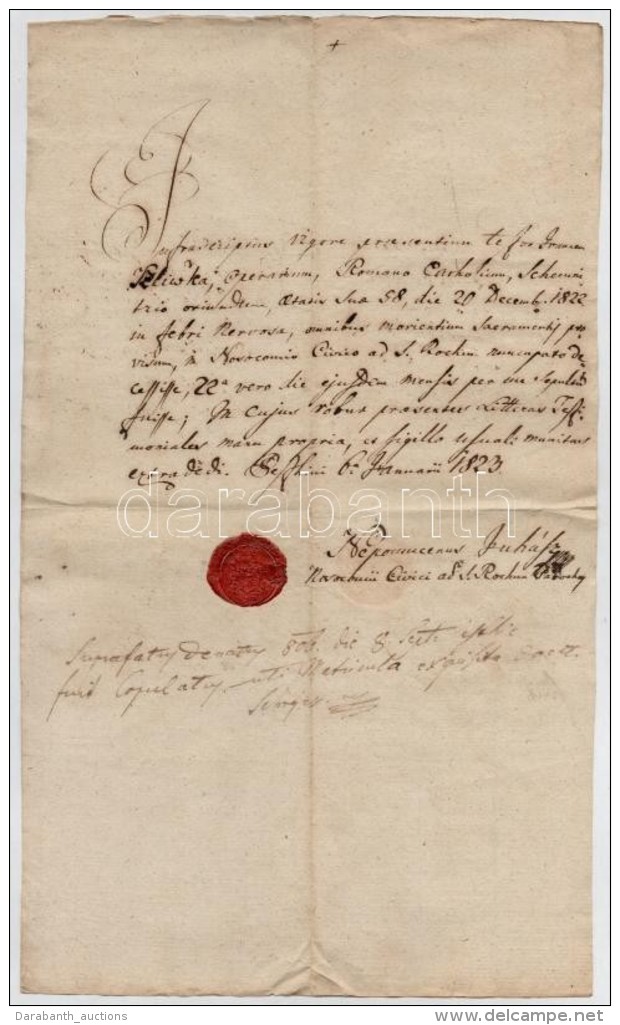 +
Infrascriptus vigore praesentium testor
Sliwka, operarium, Romano Catholicum, Schemni
trio oriundum, aetatis suae 58, die 20 Decemb. 1822
in febri Nervosa, omnibus morientium Sacramentis pro
visum, in Nosocomio Civico ad S. Rochum nuncupato de
cessisse, 22ª vero die ejusdem mensis per me sepultum
fuisse; In cujus robur praesentes Litteras Testi
moniales manu propria, et sigillo usuali munitas
extradedi. Pesthini 6ª Januarii 1823
darabanth
Nepomucenus Juhász
Nosocomii Civici ad S. Rochum Parochus
Suprafatus denatus die 8. Sept.
fuit Copulatus uti Matricula exposita docet.
Darabanth_auctions
delcampe.net